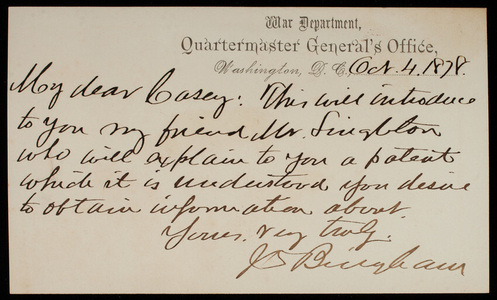 War Department,
Quartermaster General's Office,
Washington, D. C., Oct. 4, 1878.
My dear Casey: This will introduce
to you my friend Mr. Singleton
who will explain to you a patent
which it is understood you desire
to obtain information about.
Yours very truly.
J D Bingham